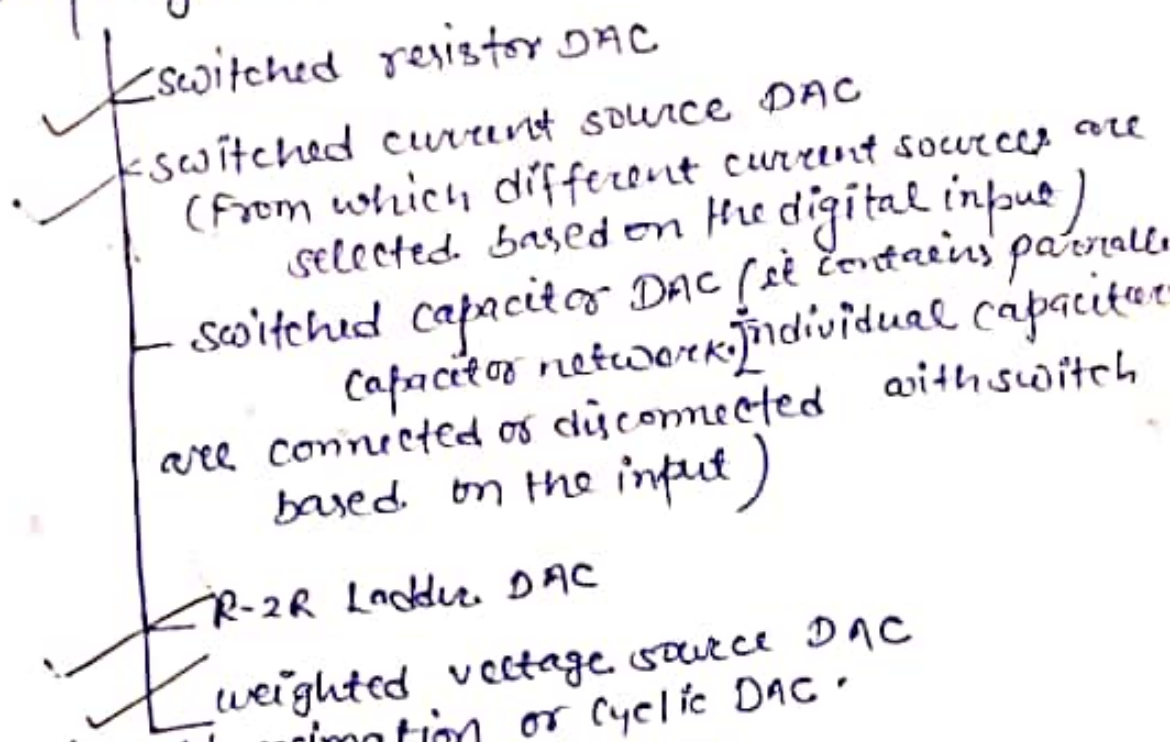 switched resistor DAC
switched current source DAC
(From which different current sources are
selected based on the digital input)
switched capacitor DAC (it contains
capacitor network. Individual
are connected or disconnected with switch
based on the input)
R-2R Ladder DAC
weighted voltage source DAC
or Cyclic DAC.